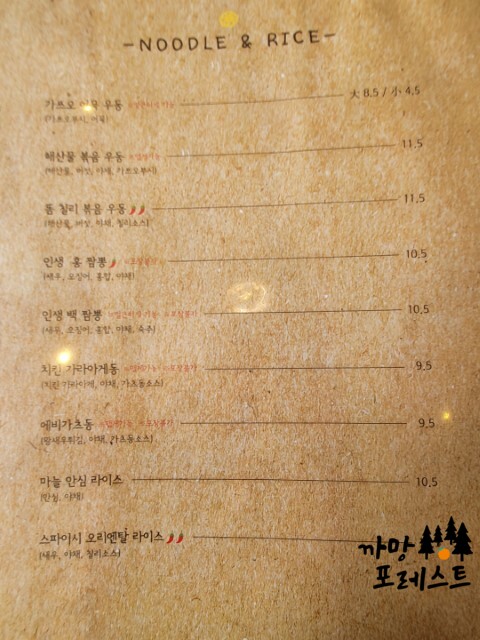 -NOODLE & RICE-
가쓰오 어묵 우동 大 8.5 / 小 4.5
(가쓰오부시, 어묵)
해산물 볶음 우동 11.5
(해산물, 버섯, 야채, 가쓰오부시)
톰 칠리 볶음 우동 11.5
(해산물, 버섯, 야채, 칠리소스)
인생 홍 짬뽕 10.5
(새우, 오징어, 홍합, 야채)
인생 백 짬뽕 10.5
(새우, 오징어, 홍합, 야채, 숙주)
치킨 가라아게동 9.5
(치킨 가라아게, 야채, 가츠동소스)
에비가츠동 9.5
(왕새우튀김, 야채, 가츠동소스)
마늘 안심 라이스 10.5
(안심, 야채)
스파이시 오리엔탈 라이스
(새우, 야채, 칠리소스)
까망
포레스트